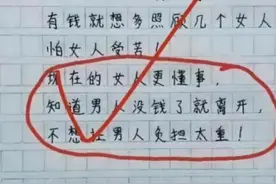 有钱就想多照顾几个女人
怕女人受苦！
现在的女人更懂事，
知道男人没钱了就离开，
不想让男人负担太重！